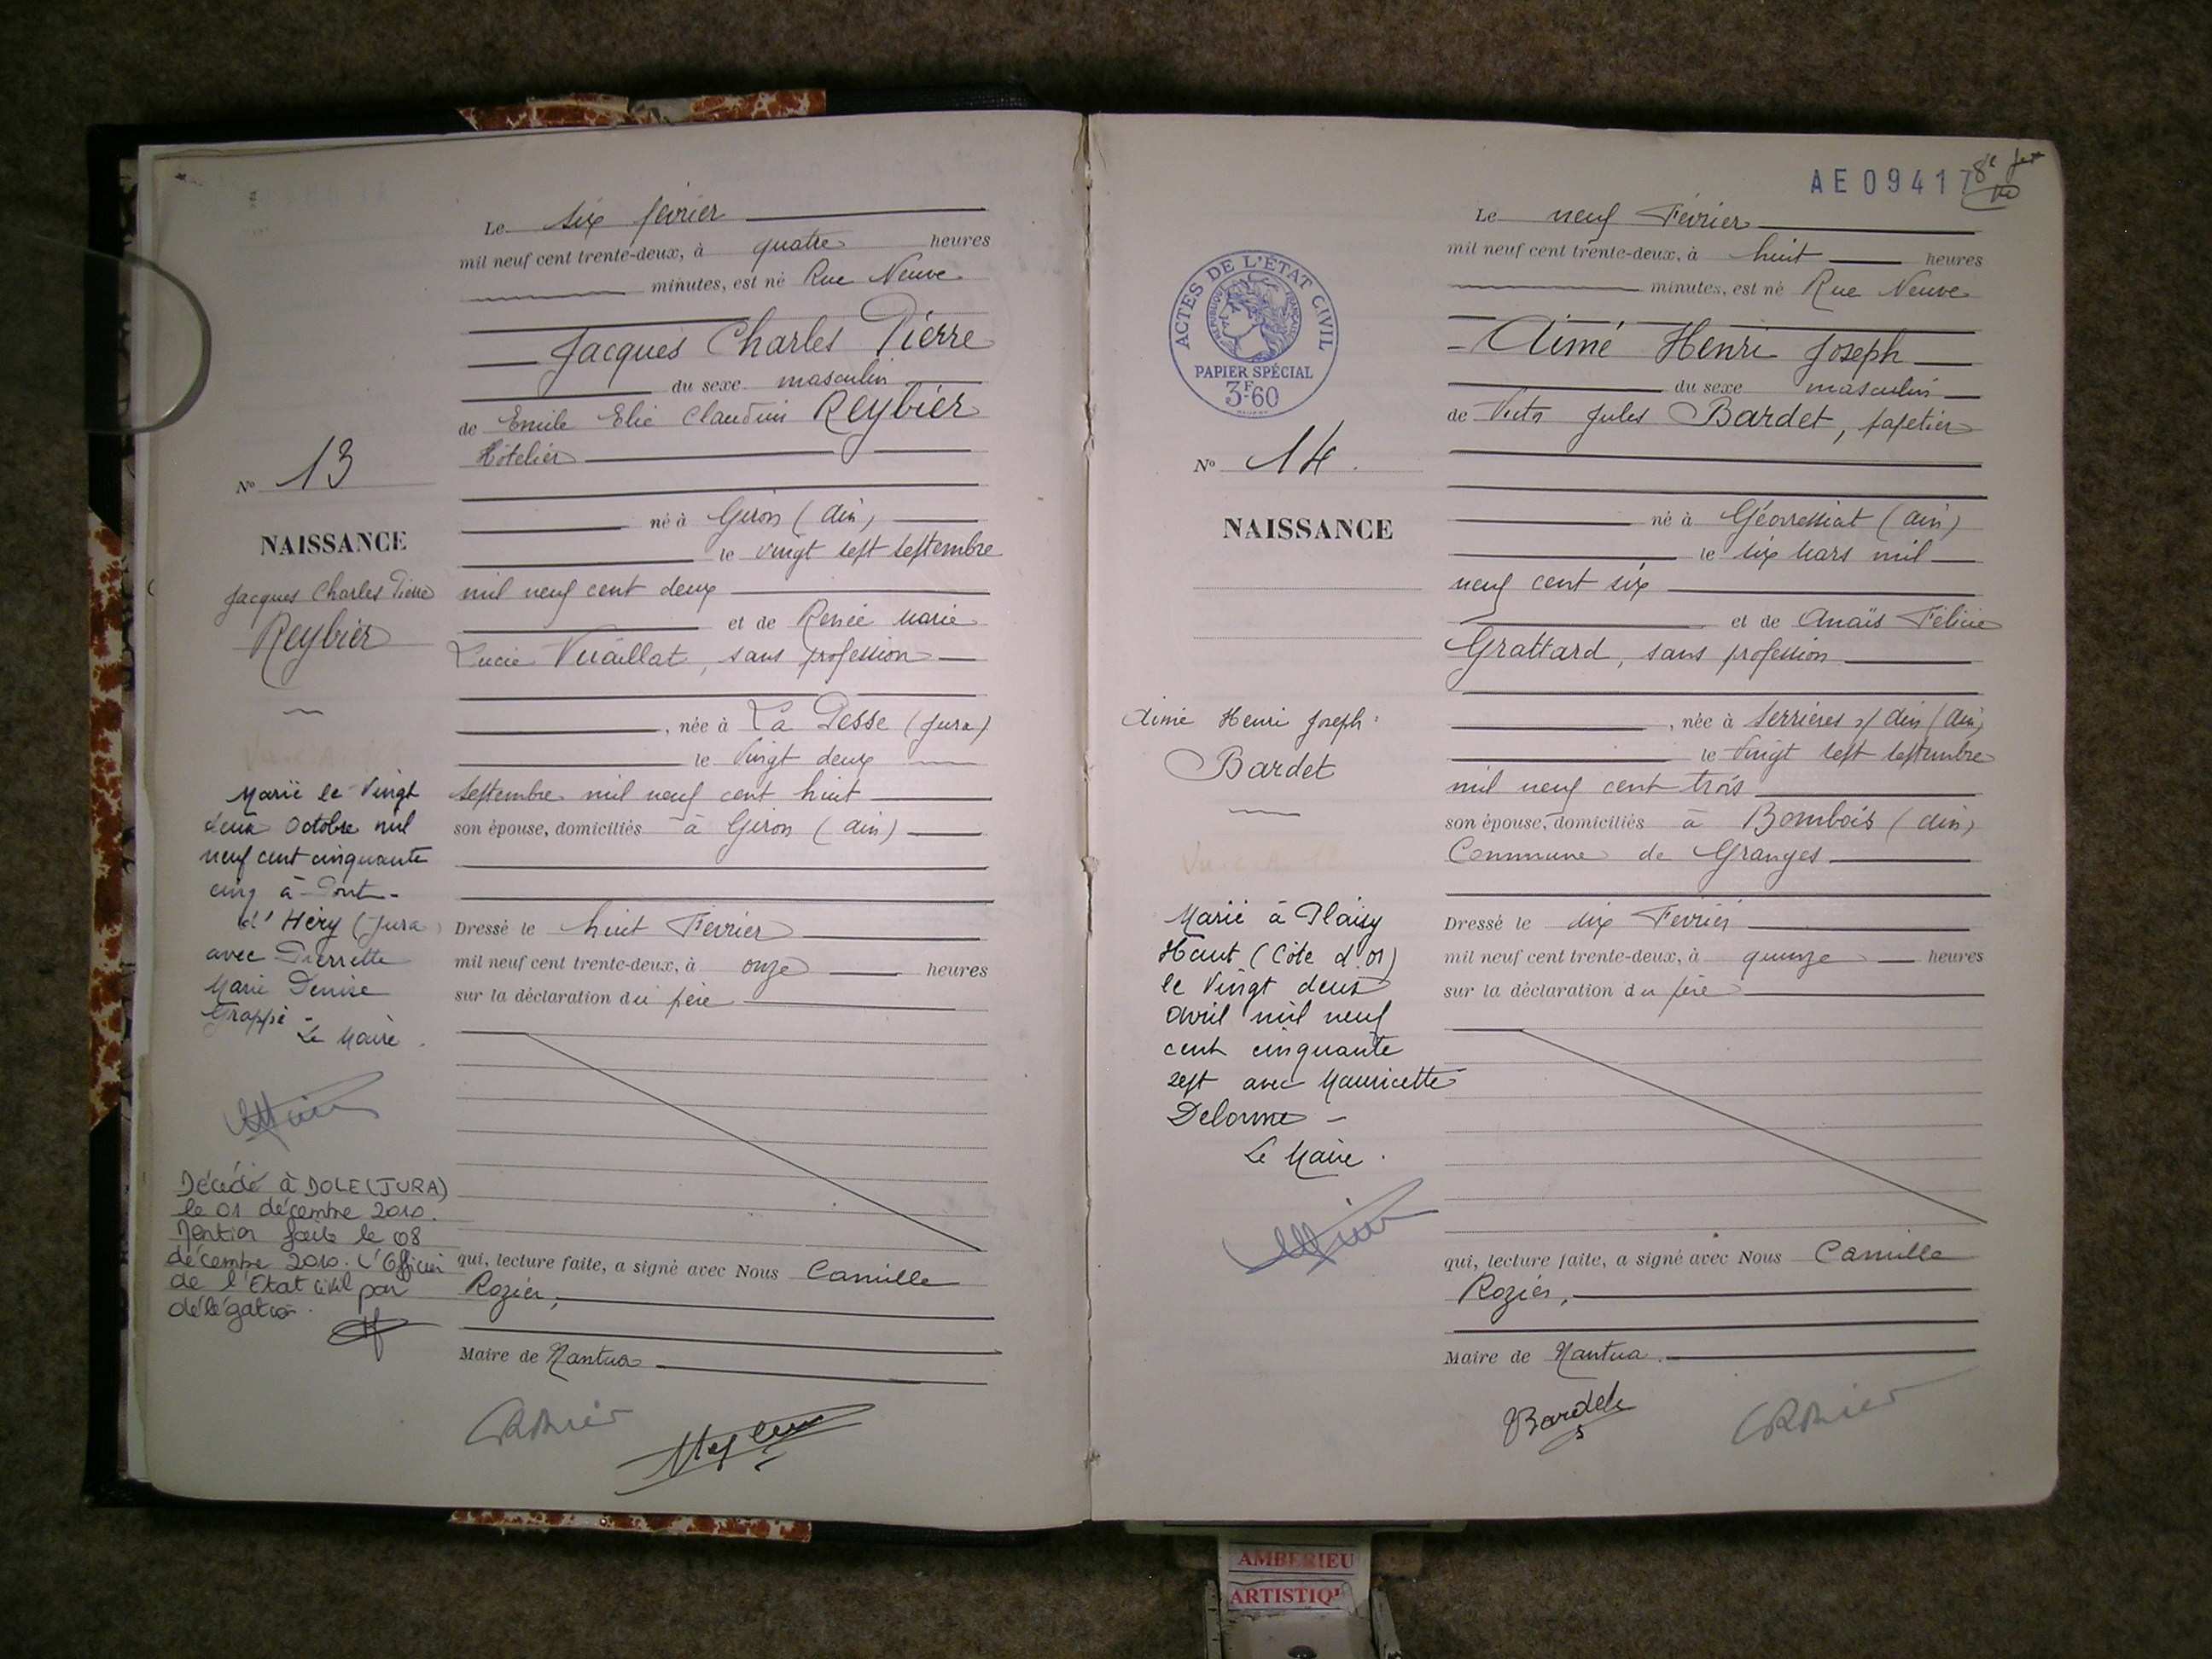 Le six février
mil neuf cent trente-deux, à quatre heures
minutes, est né Rue Neuve
Jacques Charles Pierre
du sexe masculin
de Emile Elie Claudius Reybier
Hôtelier
né à Giron (Ain)
le vingt sept septembre
mil neuf cent deux
et de Renée Marie
Lucie Vuaillat, sans profession
, née à La Pesse (Jura)
le vingt deux
septembre mil neuf cent huit
son épouse, domiciliés à Giron (Ain)
Dressé le huit Février
mil neuf cent trente-deux, à onze heures
sur la déclaration du père
qui, lecture faite, a signé avec Nous Camille
Rozier,
Maire de Nantua
No 13
NAISSANCE
Jacques Charles Pierre
Reybier
Marié le Vingt
deux Octobre mil
neuf cent cinquante
cinq à Pont-
d'Héry (Jura)
avec Pierrette
Marie Denise
Grappe -
Le Maire.
Décédé à DOLE (JURA)
le 01 décembre 2010.
Mention faite le 08
décembre 2010. L'Officier
de l'Etat Civil par
délégation.
AE09417
Le neuf Février
mil neuf cent trente-deux, à huit heures
minutes, est né Rue Neuve
Aimé Henri Joseph
du sexe masculin
de Jules Bardet, papetier
né à Géovressiat (Ain)
le six Mars mil
neuf cent six
et de Anaïs Félicie
Grattard, sans profession
, née à Serrières s/ Ain (Ain)
le vingt sept septembre
mil neuf cent trois
son épouse, domiciliés à Bombois (Ain)
Commune de Granges
Dressé le dix Février
mil neuf cent trente-deux, à quinze heures
sur la déclaration du père
qui, lecture faite, a signé avec Nous Camille
Rozier,
Maire de Nantua.
Bardet
ACTES DE L'ÉTAT CIVIL
RÉPUBLIQUE FRANÇAISE
PAPIER SPÉCIAL
3F60
No 14.
NAISSANCE
Aimé Henri Joseph
Bardet
Marié à Blaisy
Haut (Côte d'or)
le Vingt deux
avril mil neuf
cent cinquante
sept avec Mauricette
Delorme -
Le Maire.
AMBERIEU
ARTISTIQ